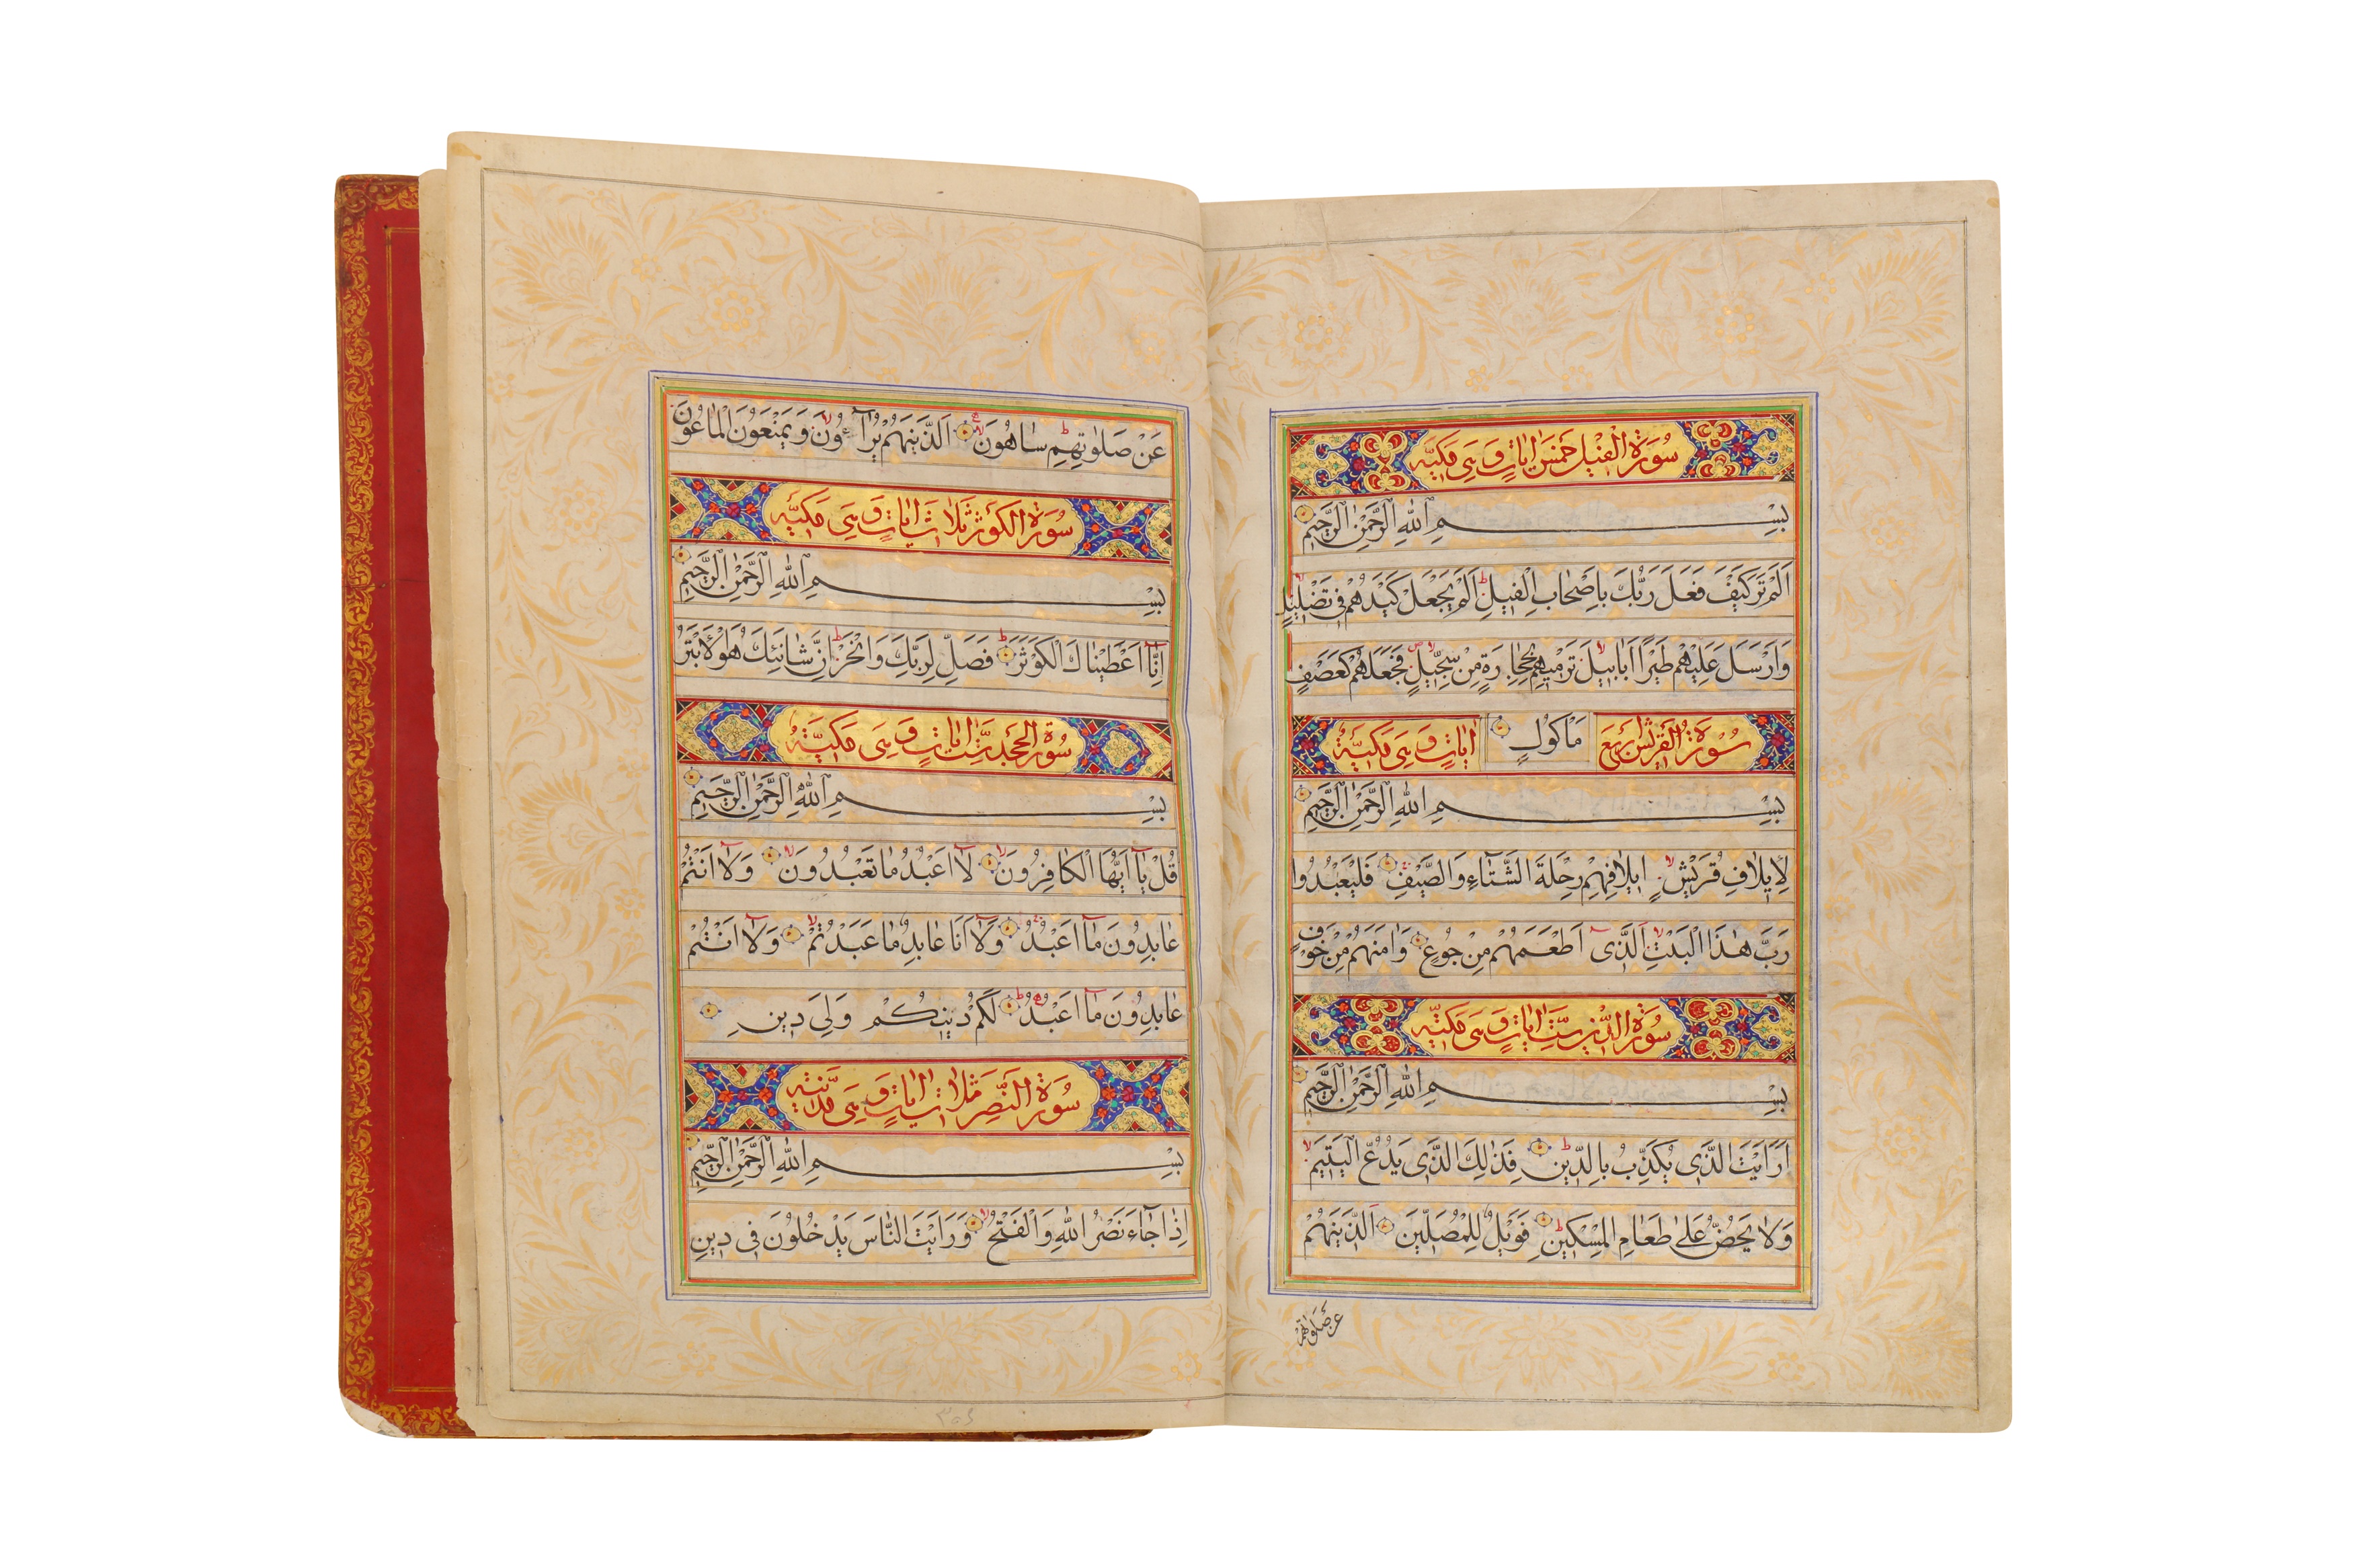 سُورَةُ الْفِيْلِ خَمْسُ اٰيَاتٍ وَهِيَ مَكِيَّه
بِسْمِ اللهِ الرَّحْمٰنِ الرَّحِيْمِ
اَلَمْ تَرَ كَيْفَ فَعَلَ رَبُّكَ بِاَصْحَابِ الْفِيْلِ اَلَمْ يَجْعَلْ كَيْدَهُمْ فِي تَضْلِيْلٍ
وَاَرْسَلَ عَلَيْهِمْ طَيْرًا اَبَابِيْلَ تَرْمِيْهِمْ بِحِجَارَةٍ مِنْ سِجِّيْلٍ فَجَعَلَهُمْ كَعَصْفٍ
مَاْكُوْلٍ
سُوْرَةُ الْقُرَيْشِ اَرْبَعَ اٰيَاتٍ وَهِيَ مَكِيَّةٌ
بِسْمِ اللهِ الرَّحْمٰنِ الرَّحِيْمِ
لِاِيلَافِ قُرَيْشٍ اِيلَافِهِمْ رِحْلَةَ الشَّتَآءِ وَالصَّيْفِ فَلْيَعْبُدُوا
رَبَّ هٰذَا الْبَيْتِ اَلَّذِىٓ اَطْعَمَهُمْ مِنْ جُوْعٍ وَاٰمَنَهُمْ مِنْ خَوْفٍ
سُوْرَةُ الدِّيْنِ سِتَّ اٰيَاتٍ وَهِيَ مَكِيَّه
بِسْمِ اللهِ الرَّحْمٰنِ الرَّحِيْمِ
اَرَاَيْتَ الَّذِى يُكَذِّبُ بِالدِّيْنِ فَذٰلِكَ الَّذِى يَدُعُّ الْيَتِيْمَ
وَلَا يَحُضُّ عَلىٰ طَعَامِ الْمِسْكِيْنِ فَوَيْلٌ لِلْمُصَلِّيْنَ اَلَّذِيْنَ هُمْ
عن صلوٰتهم
عَنْ صَلٰوتِهِمْ سَاهُوْنَ اَلَّذِيْنَ هُمْ يُرَآءُوْنَ وَيَمْنَعُوْنَ الْمَاعُوْنَ
سُوْرَةُ الْكَوْثَرِ ثَلَاثُ اٰيَاتٍ وَهِيَ مَكِيَّه
بِسْمِ اللهِ الرَّحْمٰنِ الرَّحِيْمِ
اِنَّآ اَعْطَيْنَاكَ الْكَوْثَرَ فَصَلِّ لِرَبِّكَ وَانْحَرْ اِنَّ شَانِئَكَ هُوَ الْاَبْتَرُ
سُوْرَةُ الجحد سِتُّ اٰيَاتٍ وَهِيَ مَكِيَّةٌ
بِسْمِ اللهِ الرَّحْمٰنِ الرَّحِيْمِ
قُلْ يَآ اَيُّهَا الْكَافِرُوْنَ لَآ اَعْبُدُ مَا تَعْبُدُوْنَ وَلَآ اَنْتُمْ
عَابِدُوْنَ مَآ اَعْبُدُ وَلَآ اَنَا عَابِدٌ مَا عَبَدْتُمْ وَلَآ اَنْتُمْ
عَابِدُوْنَ مَآ اَعْبُدُ لَكُمْ دِيْنُكُمْ وَلِيَ دِيْنِ
سُوْرَةُ النَّصْرِ ثَلَاثُ اٰيَاتٍ وَهِيَ مَدَنِيَّه
بِسْمِ اللهِ الرَّحْمٰنِ الرَّحِيْمِ
اِذَا جَآءَ نَصْرُ اللهِ وَالْفَتْحُ وَرَاَيْتَ النَّاسَ يَدْخُلُوْنَ فِي دِيْنِ